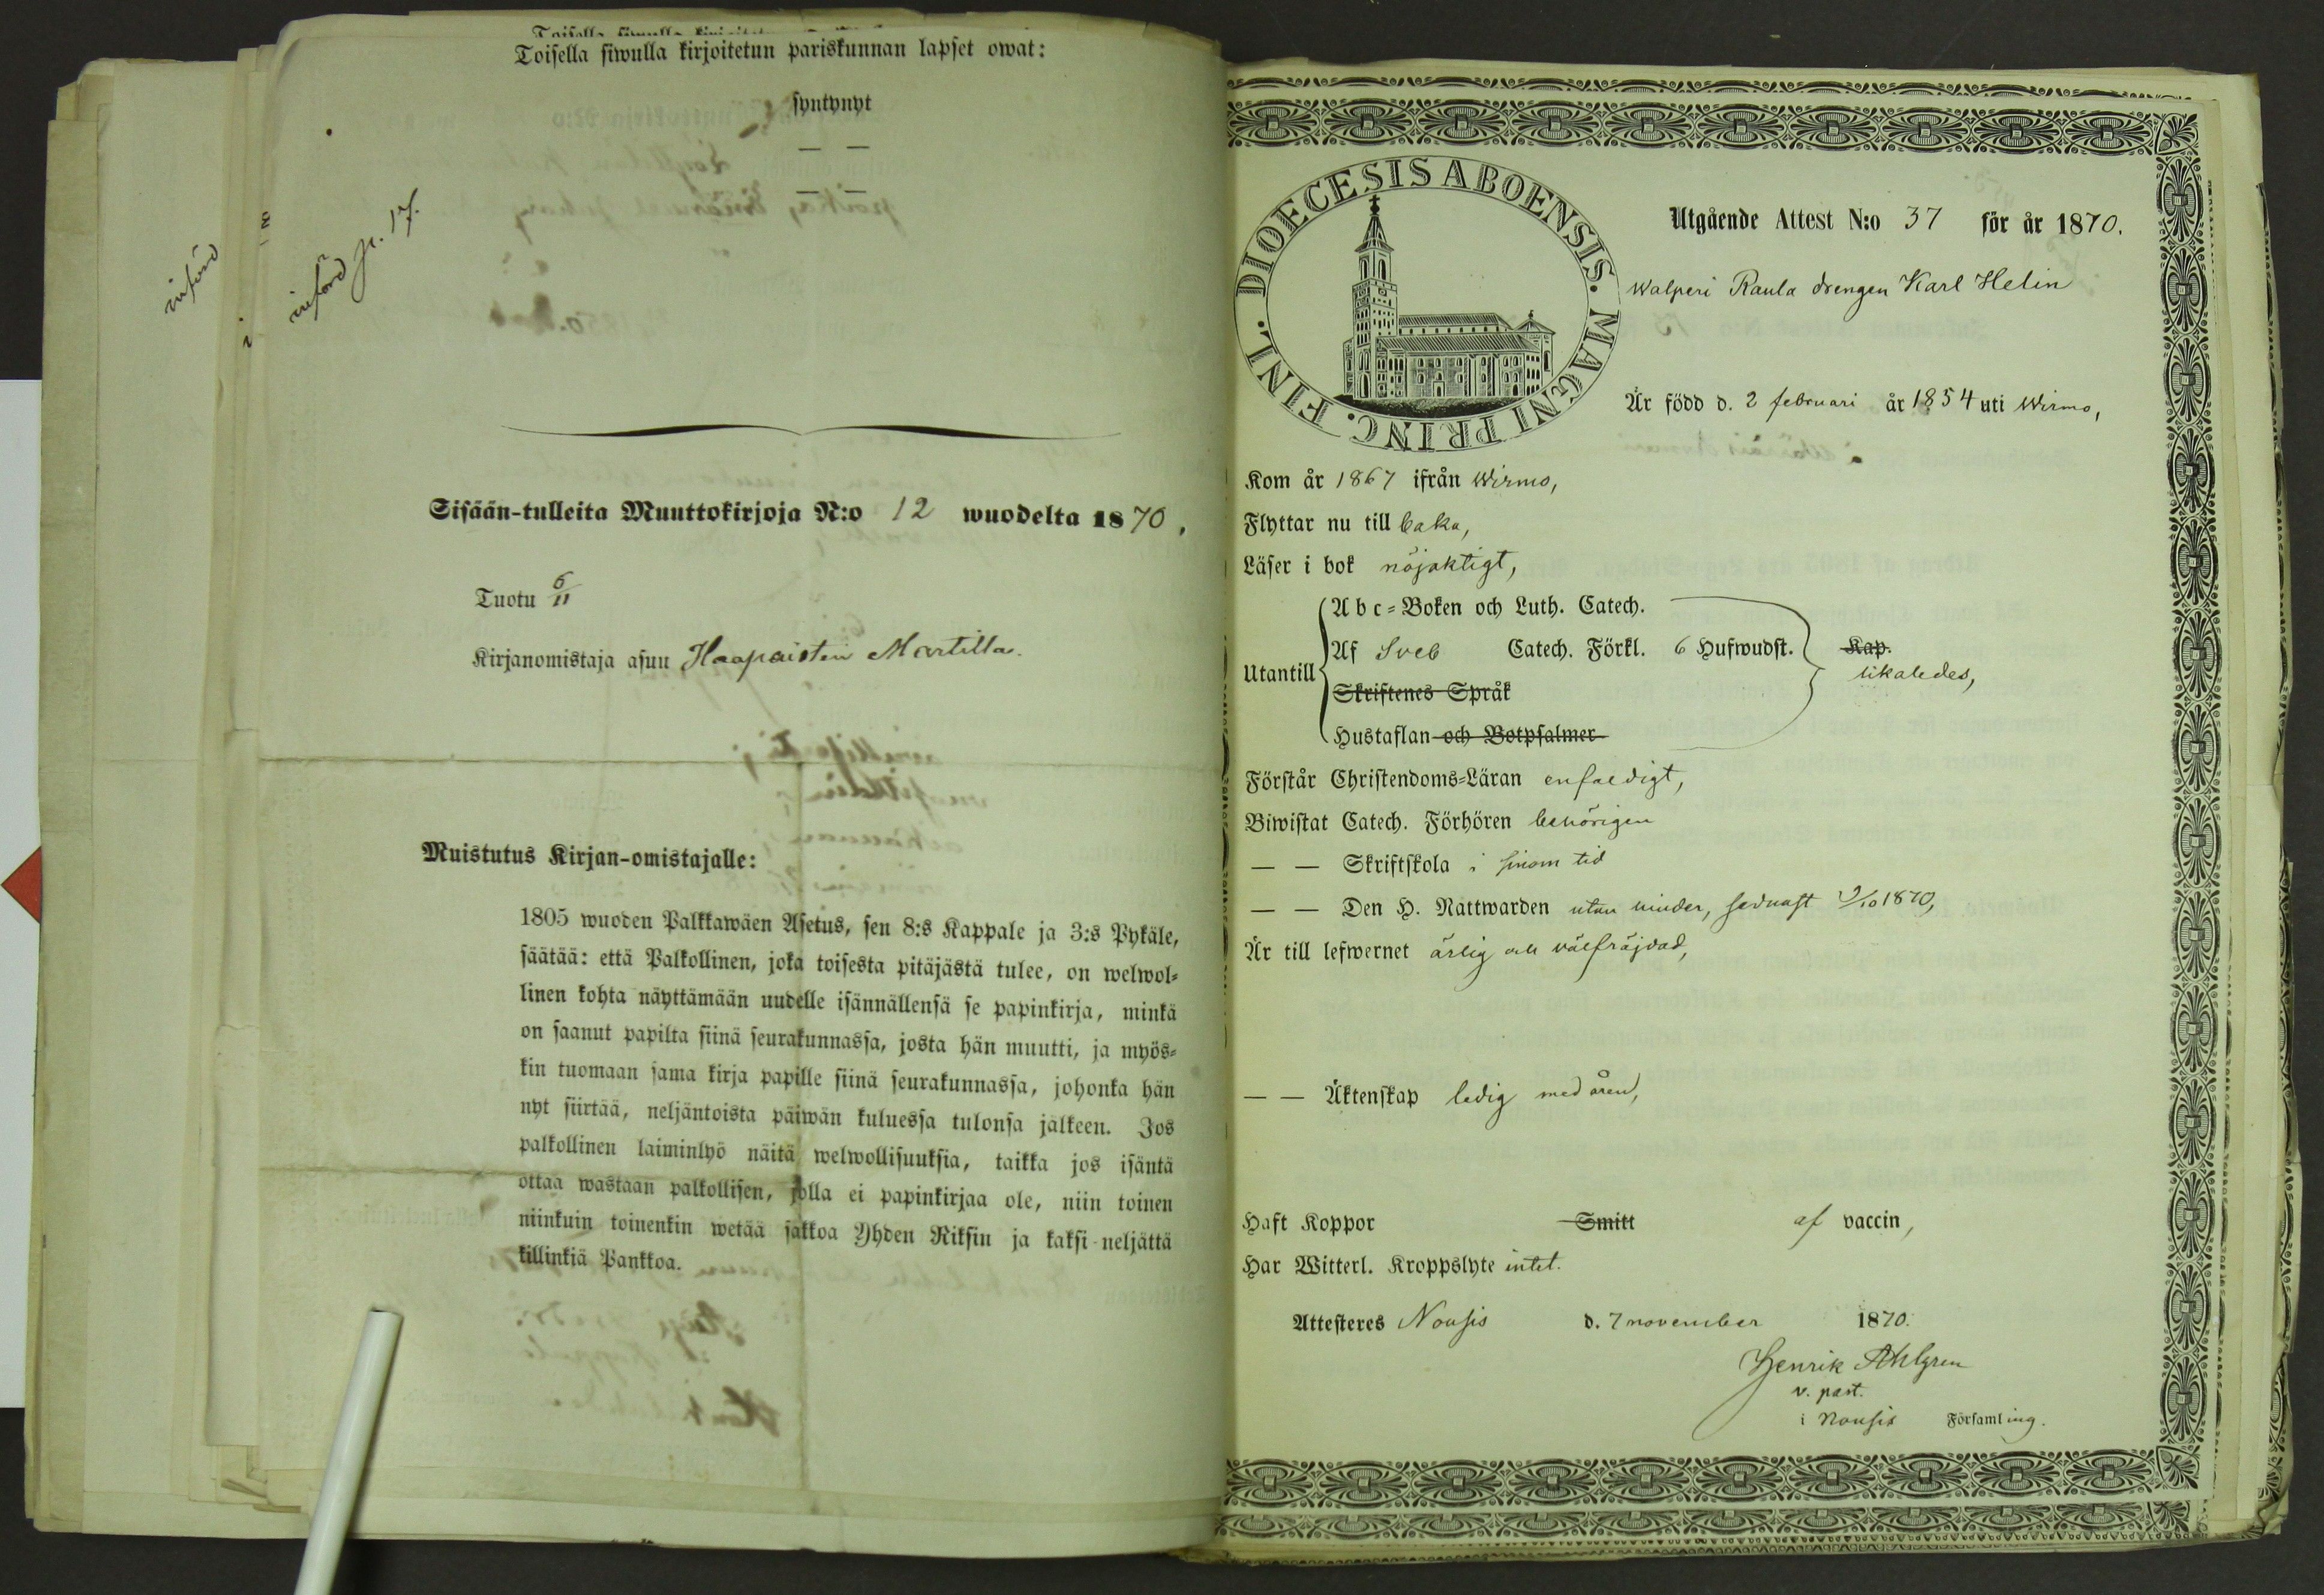 Toisella siwulla kirjoitetun pariskunnan lapset owat:
syntynyt
— —
— —
införd
införd p. 17.
Sisään-tulleita Muuttokirjoja N:o 12 wuodelta 1870.
Tuotu 6/11
Kirjanomistaja asuu Haapaisten Martilla.
Muistutus Kirjan-omistajalle:
1805 wuoden Palkkawäen Asetus, sen 8:s Kappale ja 3:s Pykäle,
säätää: että Palkollinen, joka toisesta pitäjästä tulee, on welwol-
linen kohta näyttämään uudelle isännällensä se papinkirja, minkä
on saanut papilta siinä seurakunnassa, josta hän muutti, ja myös-
kin tuomaan sama kirja papille siinä seurakunnassa, johonka hän
nyt siirtää, neljäntoista päiwän kuluessa tulonsa jälkeen. Jos
palkollinen laiminlyö näitä welwollisuuksia, taikka jos isäntä
ottaa wastaan palkollisen, jolla ei papinkirjaa ole, niin toinen
niinkuin toinenkin wetää sakkoa Yhden Riksin ja kaksi neljättä
killinkiä Pankkoa.
DIOECESIS ABOENSIS. MAGNI PRINC. FINL.
Utgående Attest N:o 37 för år 1870.
Walperi Raula drengen Karl Helin
Är född d. 2 februari år 1854 uti Wirmo,
Kom år 1867 ifrån Wirmo,
Flyttar nu till
Läser i bok nöjaktigt,
Abc-Boken och Luth. Catech.
Af Sveb Catech. Förkl. 6 Hufwudst. Kap.
Utantill likaledes,
Skriftenes Språk
Hustaflan och Botpsalmer
Förstår Christendoms-Läran enfaldigt,
Biwistat Catech. Förhören behörigen
— — Skriftskola i sinom tid
— — Den H. Nattwarden utan hinder, sednast 9/10 1870,
Är till lefwernet ärlig och välfräjdad,
— — Äktenskap ledig med åren,
Haft Koppor Smitt af vaccin,
Har Witterl. Kroppslyte intet.
Attesteres Nousis d. 7 november 1870.
Henrik Ahlgren
v. past.
i Nousis Församling.